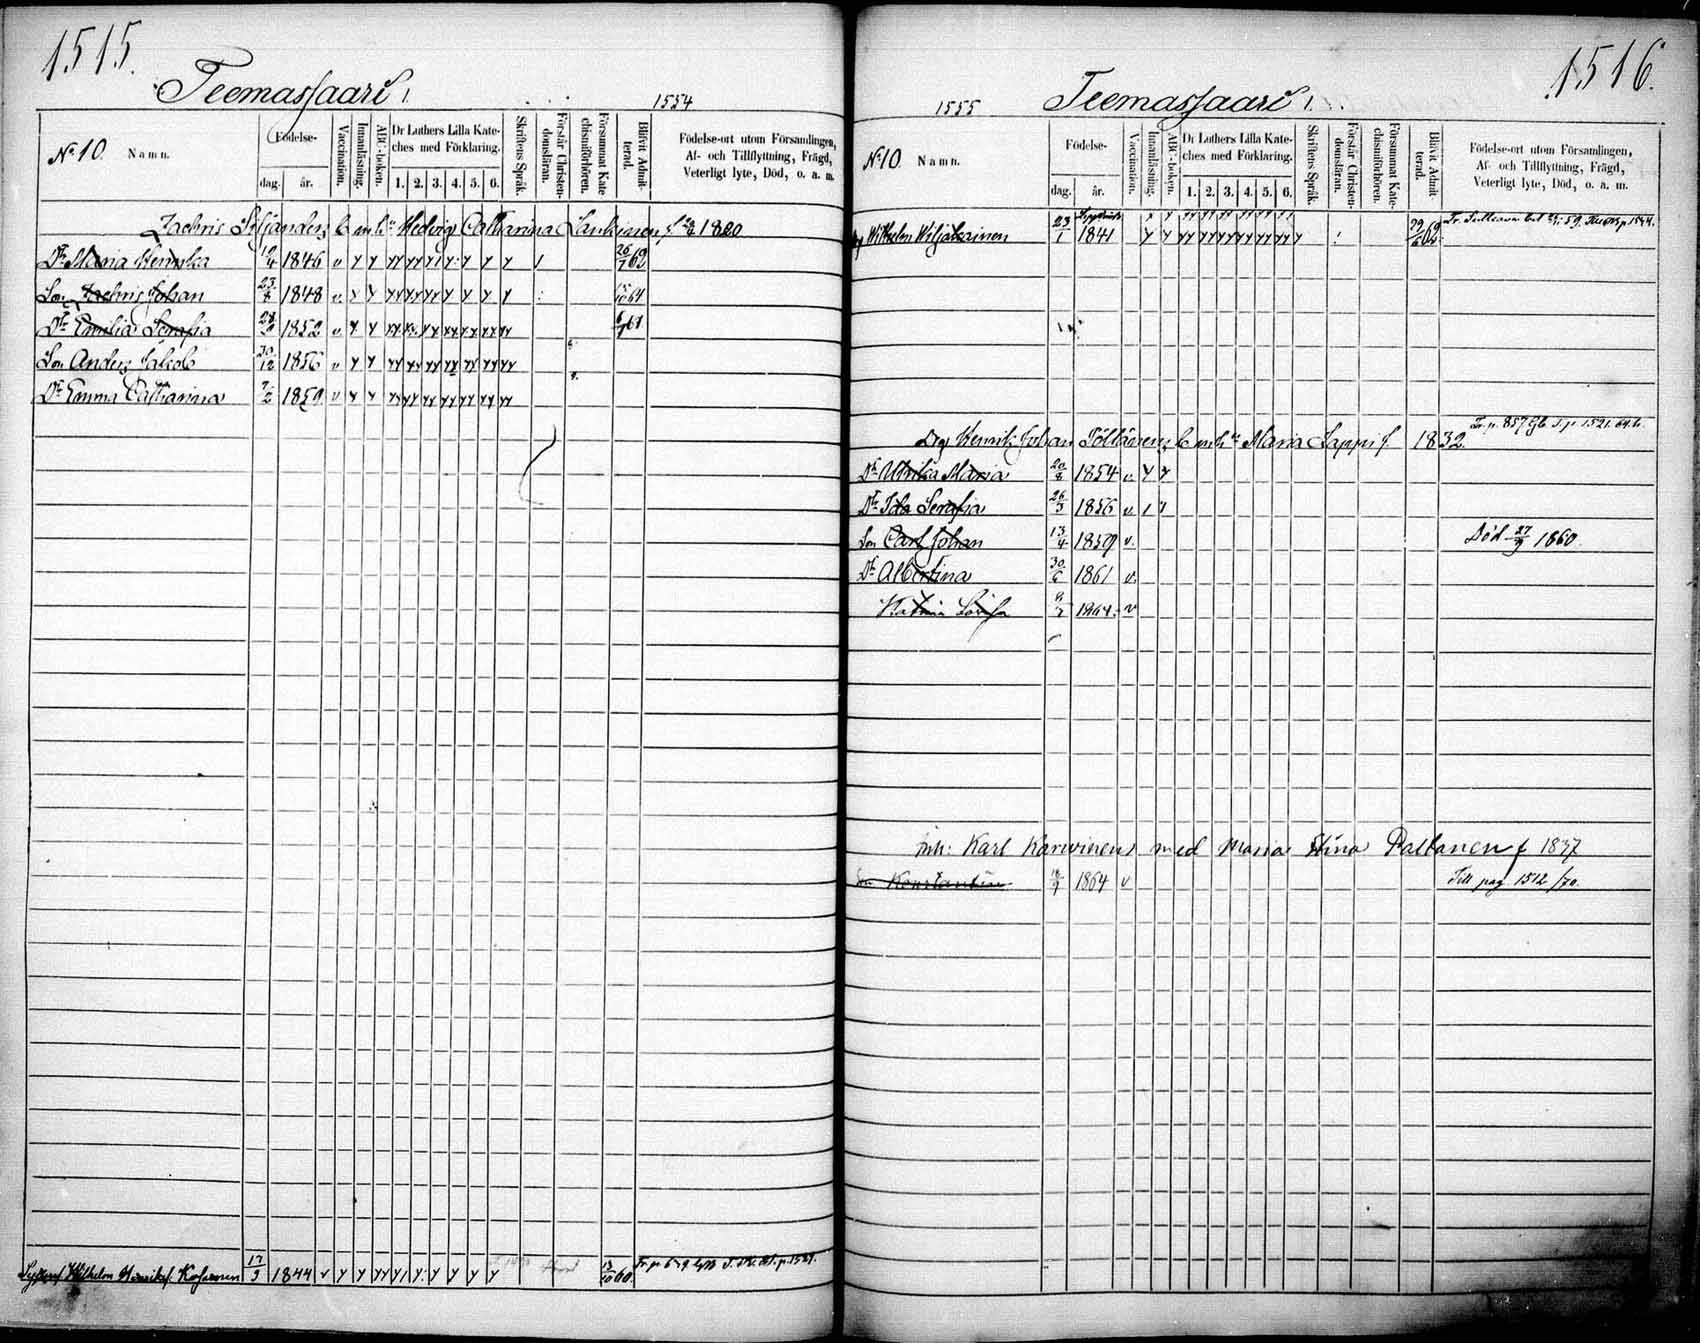 1515.
Teemassaari 1.
1554
No 10. Namn.
Födelse-
dag. år.
Vaccination.
Innanläsning.
ABC-boken.
Dr Luthers Lilla Kate-
ches med Förklaring.
1. 2. 3. 4. 5. 6.
Skriftens Språk.
Förstår Christen-
domsläran.
Försummat Kate
chismiförhören.
Blifvit Admit-
terad.
Födelse-ort utom Församlingen,
Af- och Tillflyttning, Frägd,
Veterligt lyte, Död, o. a. m.
Zachris Siljanders b m h Hedvig Catharina Lankinen f 1820
Dr Maria Henrika 19/4 1846 v 26/7 62
Son Zachris Johan 23/8 1848 v 64
Dr Emilia Serafia 1852 v 6/7 67
Son Anders Jakob 30/12 1856 v
Dr Emma Catharina 7/2 1859 v
Wilhelm Henriksf. Kosonen 17/3 1844 v 13/10 60
1516.
1555
Teemassaari 1.
No 10 Namn.
Födelse-
dag. år.
Vaccination.
Innanläsning.
ABC-boken.
Dr Luthers Lilla Kate-
ches med Förklaring.
1. 2. 3. 4. 5. 6.
Skriftens Språk.
Förstår Christen-
domsläran.
Försummat Kate-
chismiförhören.
Blifvit Admit-
terad.
Födelse-ort utom Församlingen,
Af- och Tillflyttning, Frägd,
Veterligt lyte, Död, o. a. m.
Wilhelm Wiljakainen 23/1 1841
Fr. p. 857 T. p. 1521
Drg Henrik Johan Pöllänens b m h Maria Lappi f. 1832.
Dr Ulrika Maria 20/8 1854 v
Dr Ida Serafia 26/3 1856 v
Son Carl Johan 13/4 1859 v. Död 27/9 1860.
Dr Albertina 30/6 1861 v.
Katrina Lovisa 1864 v
Inh: Karl Karvinens med Maria Stina Paltanen f 1837
Son Konstantin 18/9 1864 v Till pag. 1512 /70.